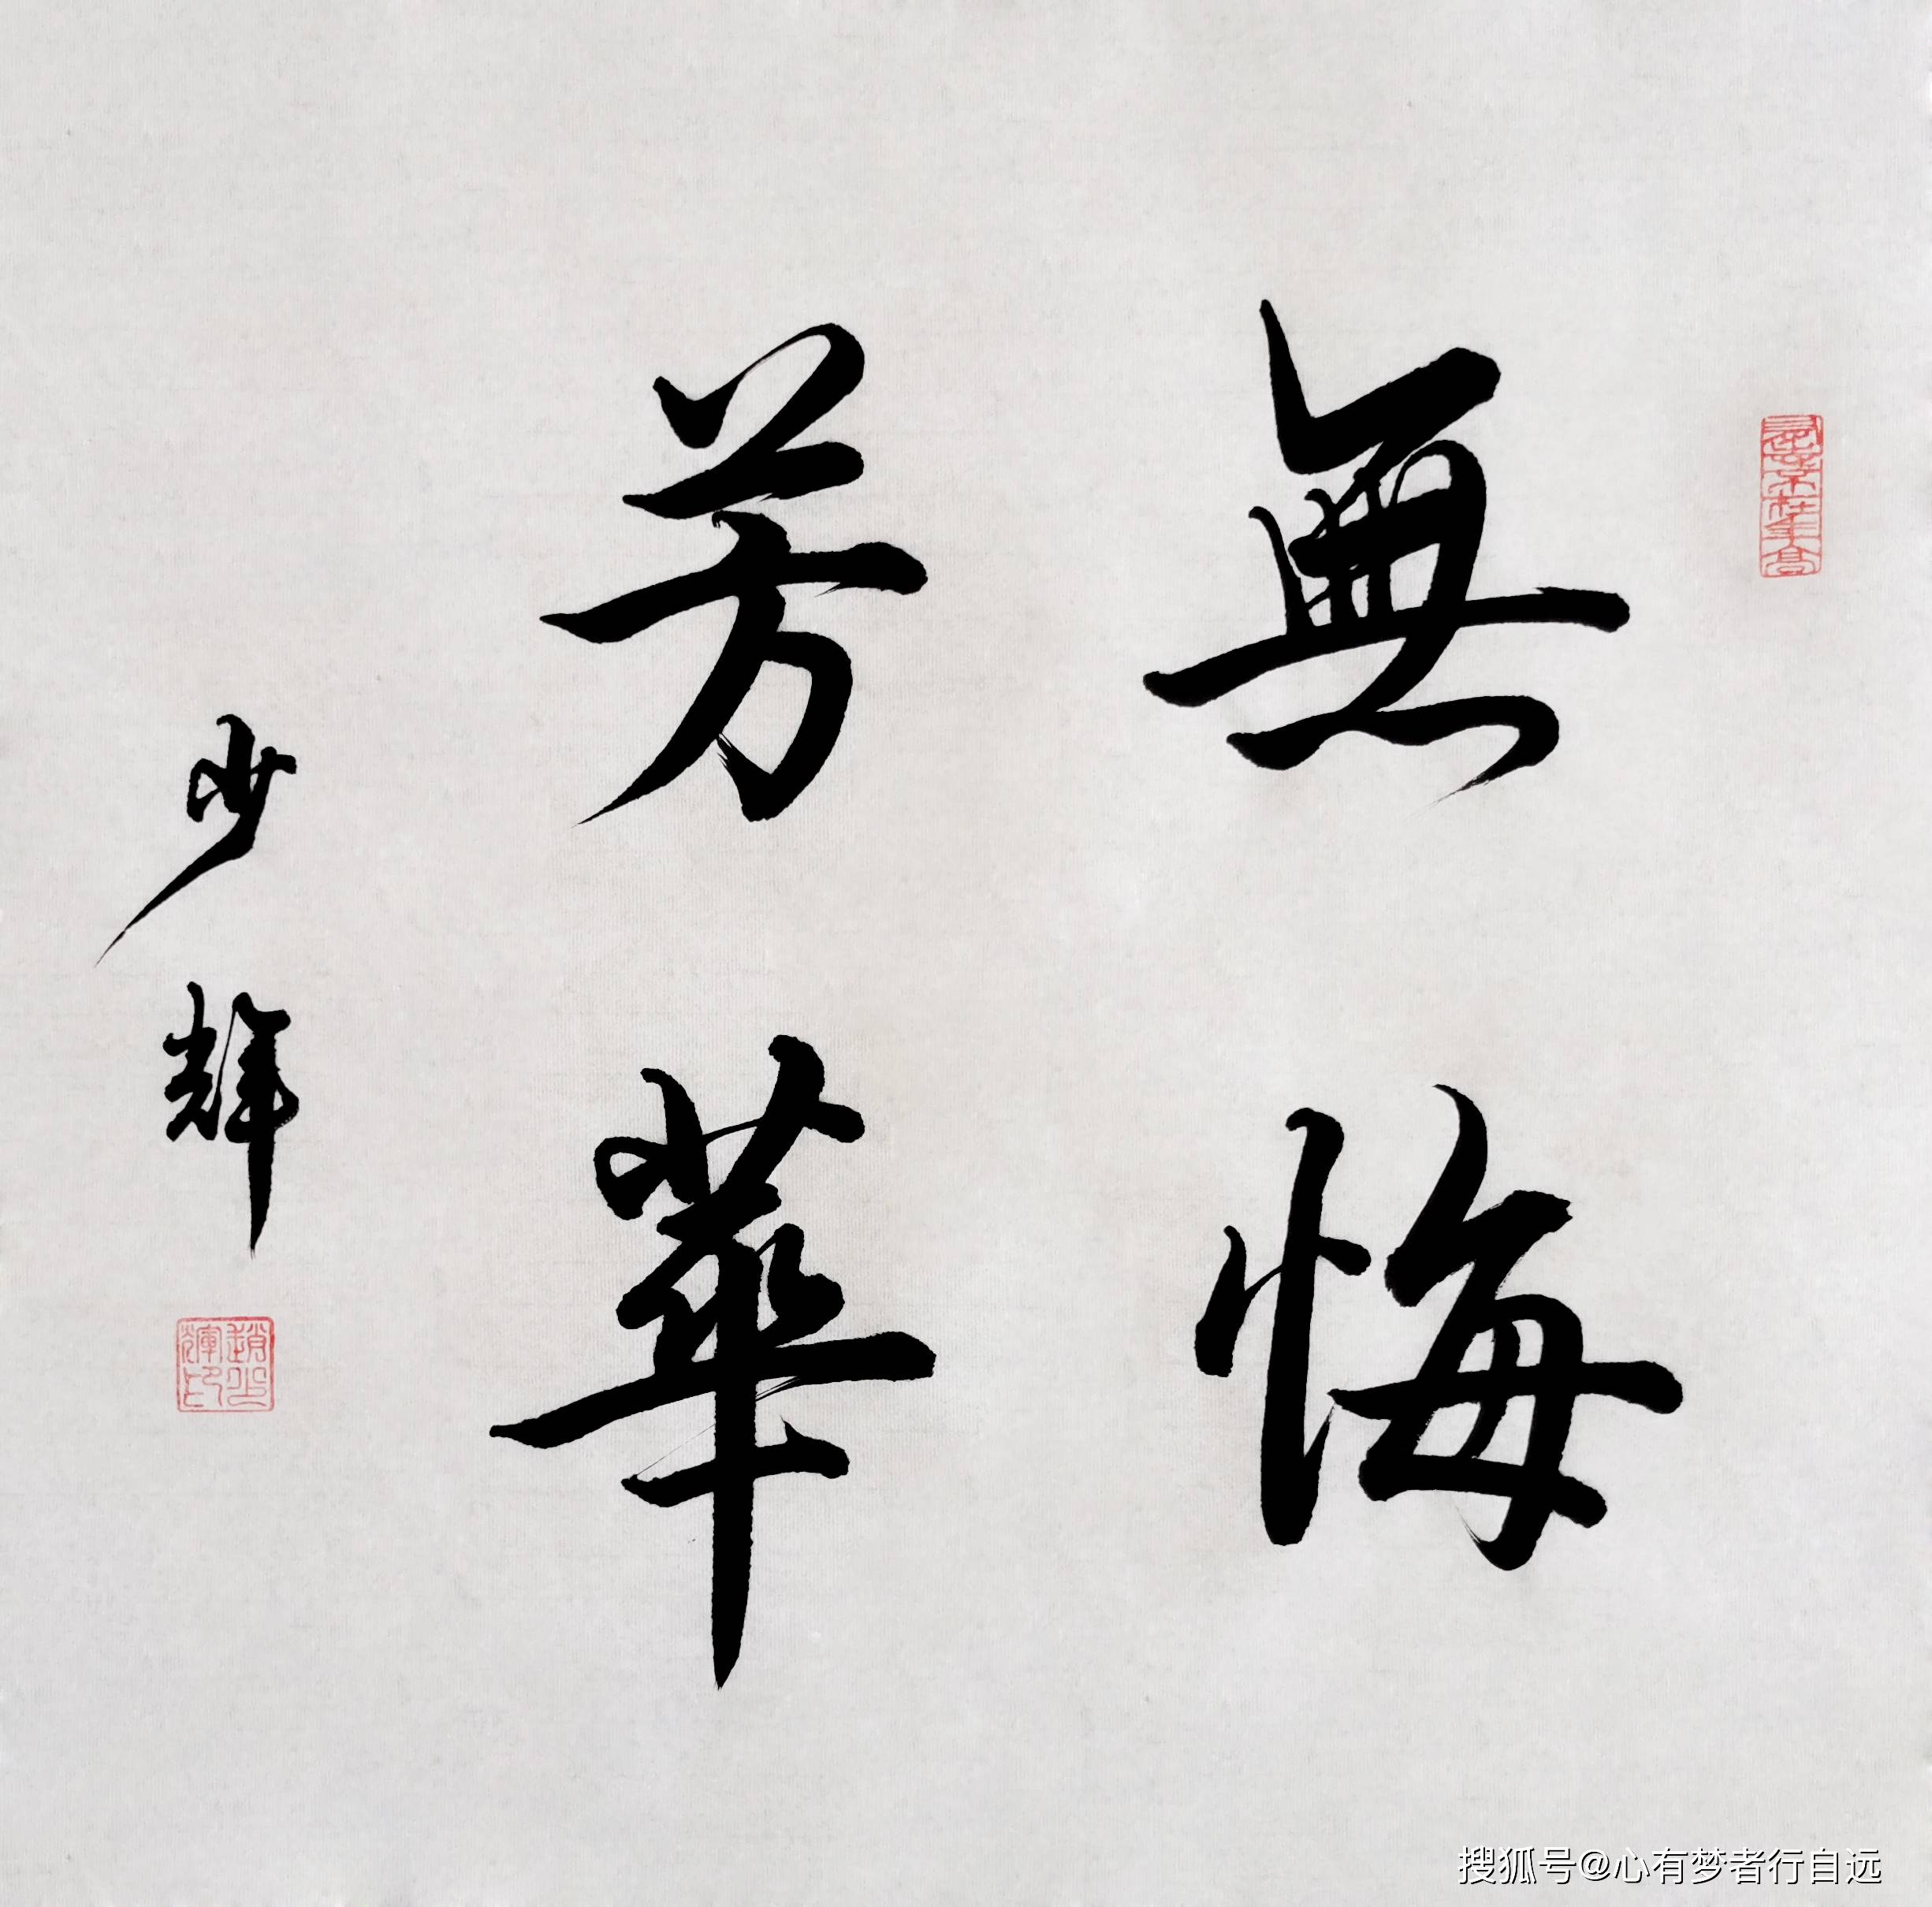 無悔
芳華
少輝
趙少輝印
搜狐号@心有梦者行自远